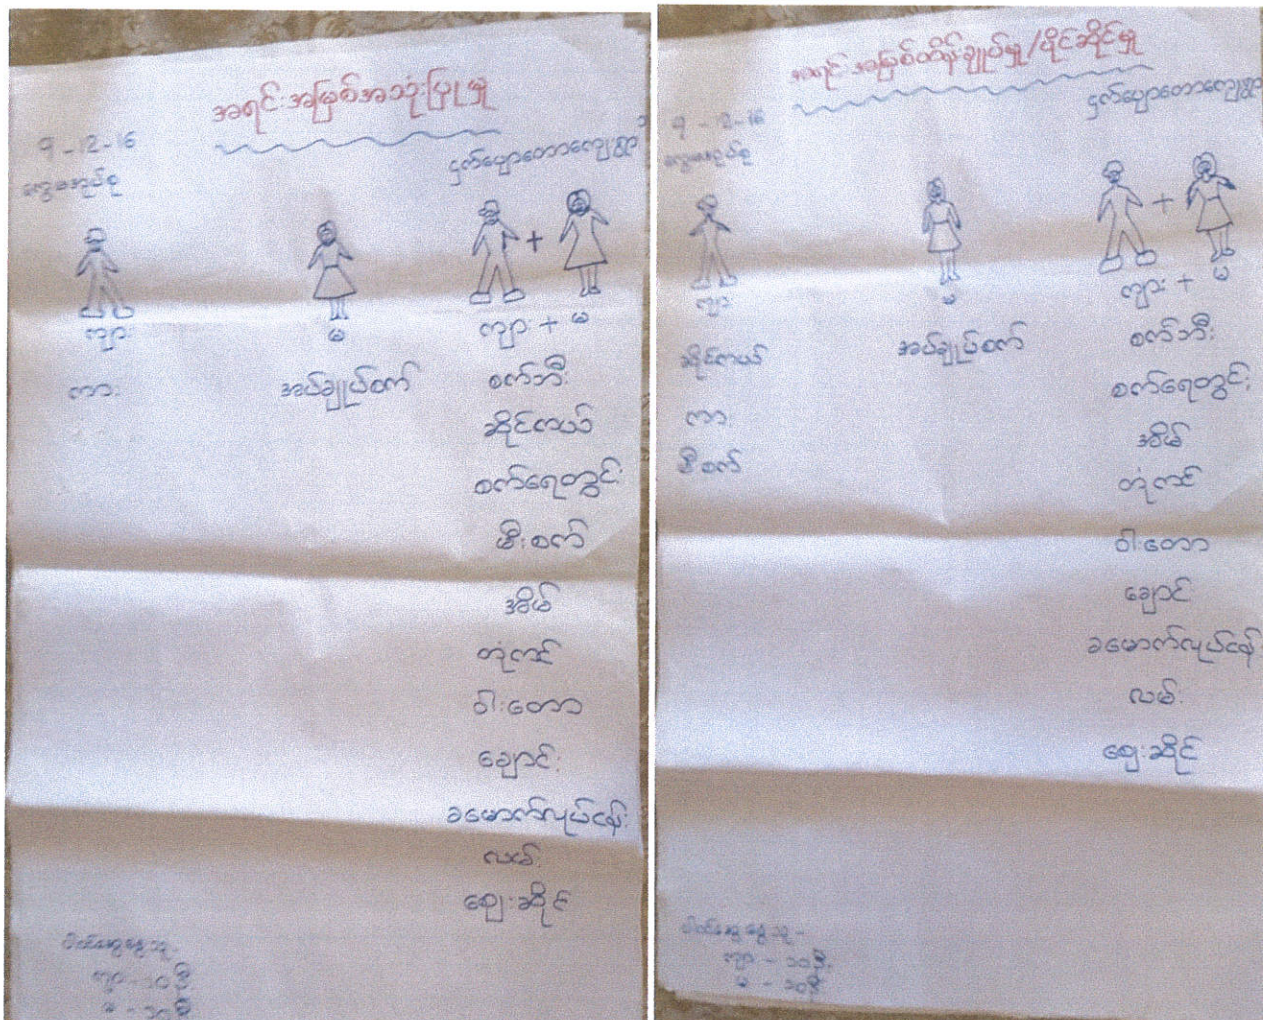 အရင်းအမြစ်အသုံးပြုမှု
9-12-16
ငှက်ပျောတောကျေးရွာ
ကျား
မ
ကျား + မ
ကား
အပ်ချုပ်စက်
စက်ဘီး
ဆိုင်ကယ်
စက်ရေတွင်း
မီးစက်
အိမ်
တုံကင်
ဝါးတော
ချောင်း
ခမောက်လုပ်ငန်း
လမ်း
ဈေးဆိုင်
ကျား - ၁၀ ဦး
မ - ၁၀ ဦး
အရင်းအမြစ်ထိန်းချုပ်မှု/ပိုင်ဆိုင်မှု
9-12-16
ငှက်ပျောတောကျေးရွာ
ကျား
မ
ကျား + မ
ဆိုင်ကယ်
အပ်ချုပ်စက်
စက်ဘီး
ကား
စက်ရေတွင်း
မီးစက်
အိမ်
တုံကင်
ဝါးတော
ချောင်း
ခမောက်လုပ်ငန်း
လမ်း
ဈေးဆိုင်
ကျား - ၁၀ ဦး
မ - ၁၀ ဦး